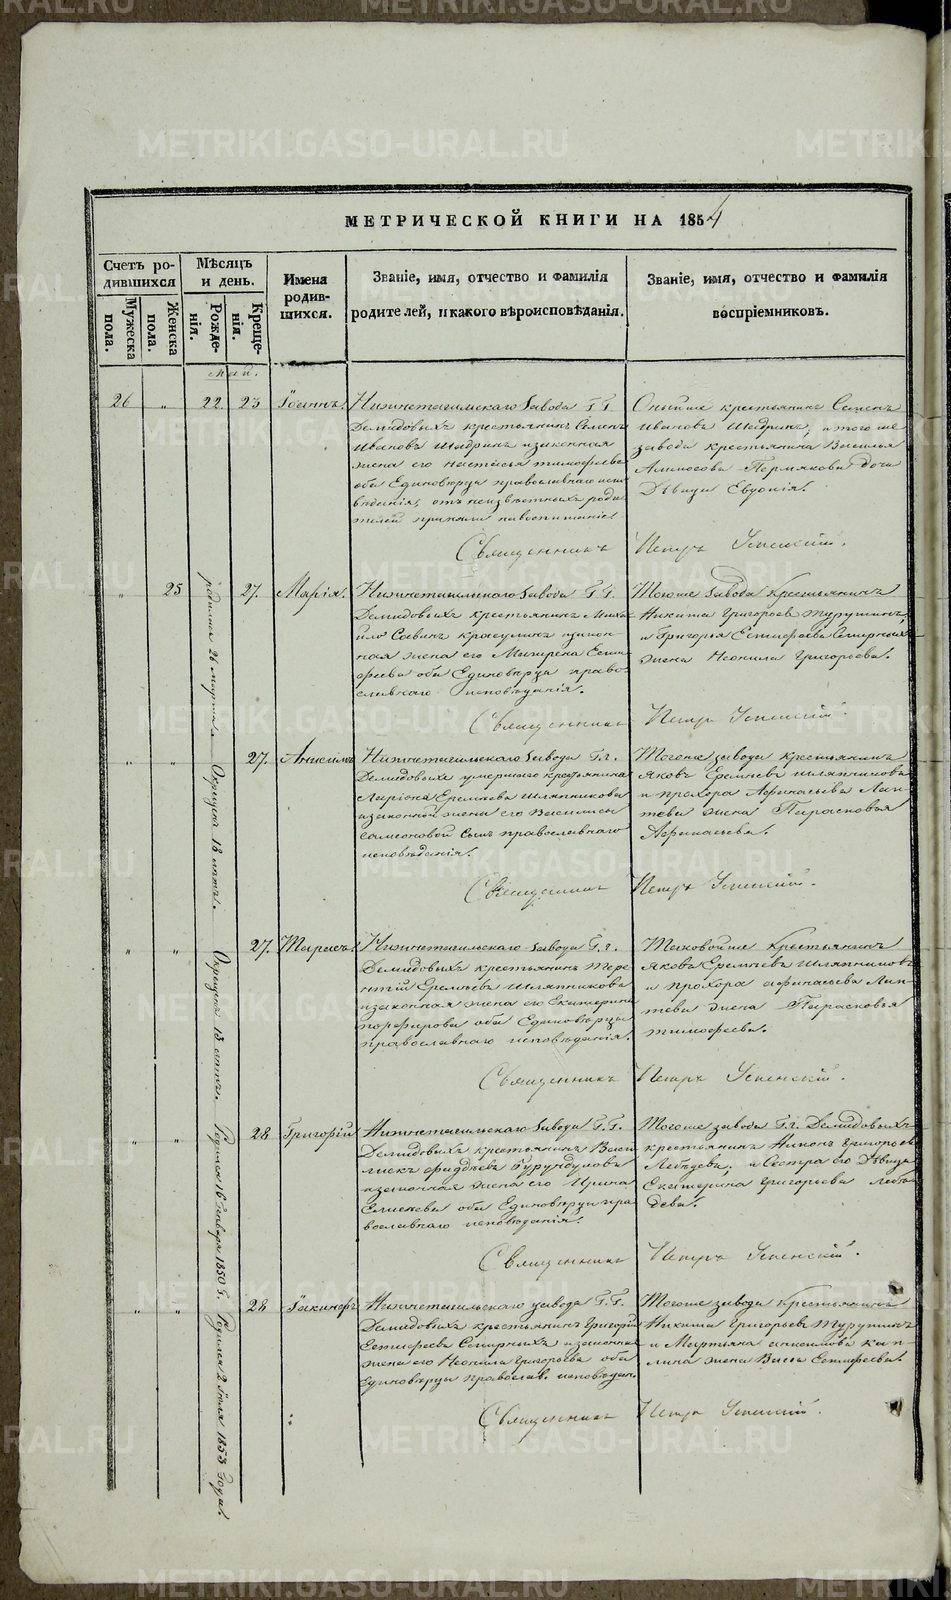 МЕТРИЧЕСКОЙ КНИГИ НА 1854
Счетъ ро-
дившихся
Мужеска
пола.
Женска
пола.
Мѣсяцъ
и день.
Рожде-
нія.
Креще-
нія.
Имена
родив-
шихся.
Званіе, имя, отчество и фамилія
родителей, и какого вѣроисповѣданія.
Званіе, имя, отчество и фамилія
воспріемниковъ.
Май.
26 " 22. 23 Іоаннъ.
Нижнетагильскаго Завода Г.Г.
Демидовыхъ крестьянинъ Семенъ
Ивановъ Щедринъ и законная
жена его Настасья Тимофѣева
оба Единовѣрцы православнаго испо
вѣданія, отъ неизвѣстныхъ роди
телей приняли на воспитаніе
крестьянинъ Семенъ
Ивановъ Щедринъ, и того же
завода крестьянина Василья
Пермякова дочь
Дѣвица Евдокія.
Священникъ Петръ Успенскій.
" 25 27. Марія.
родилась 26 марта
Нижнетагильскаго Завода Г.Г.
Демидовыхъ крестьянинъ Миха
йло Савинъ Красулинъ и закон-
ная жена его Матрена Естифѣева
оба Единовѣрцы право-
славнаго исповѣданія.
Тогоже Завода Крестьянинъ
Никита Григорьевъ Турутинъ,
и Григорья Естифеева Смирныхъ
жена Неонила Григорьева.
Священникъ Петръ Успенскій.
" " 27. Анисимъ
Окрещенъ 13 сентъ.
Нижнетагильскаго Завода Г.г.
Демидовыхъ умершаго крестьянина
Ларіона Еремѣева Шляпникова
и законной жены его Василисы
Самсоновой сынъ православнаго
исповѣданія.
Тогоже завода крестьянинъ
Яковъ Еремѣевъ Шляпниковъ
и Прохора Афанасьева Лап-
тева жена Парасковья
Афанасьева.
Священникъ Петръ Успенскій.
" " 27. Тарасъ.
Окрещенъ 13 сентъ.
Нижнетагильскаго Завода Г.г.
Демидовыхъ крестьянинъ Тере
нтій Еремѣевъ Шляпниковъ
и законная жена его Екатерина
Порфирова оба Единовѣрцы
православнаго исповѣданія.
Таковойже Крестьянинъ
Яковъ Еремѣевъ Шляпниковъ
и Прохора Афанасьева Лап-
тева жена Парасковья
Тимофеева.
Священникъ Петръ Успенскій.
" " 28 Григорій
Родился 16 Генваря 1850 г.
Нижнетагильскаго Завода Г.Г.
Демидовыхъ крестьянинъ Васи
лискъ Фаддѣевъ Бурундуковъ
и законная жена его Ирина
Елисеева оба Единовѣрцы пра
вославнаго исповѣданія.
Тогоже завода Г.г. Демидовыхъ
крестьянинъ Никонъ Григорьевъ
Лебедевъ, и Сестра его Дѣвица
Екатерина Григорьева Лебе
дева.
Священникъ Петръ Успенскій.
" " 28 Іакинфъ
Родился 2 Іюля 1853 Года.
Нижнетагильскаго завода Г.Г.
Демидовыхъ крестьянинъ Григорій
Естифеевъ Смирныхъ и законная
жена его Неонила Григорьева оба
Единовѣрцы православ. исповѣдан.
Тогоже завода Крестьянинъ
Никита Григорьевъ Турутинъ
и Мартына Анисимова Кап
лина жена Васса Естифеева.
Священникъ Петръ Успенскій.
METRIKI.GASO-URAL.RU